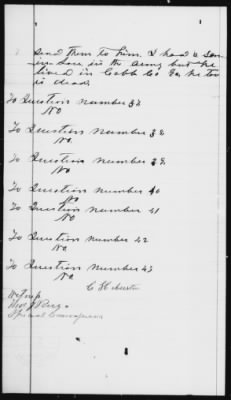 send them to him I had a son
in law in the army but he
lived in Cobb Co Ga, he too
is dead.
To Question number
No
To Question number 38
No.
To Question number 39
No.
To Question number 40
No
To Question number 41
No
To Question number 42
No
To Question number 43
No.
Special